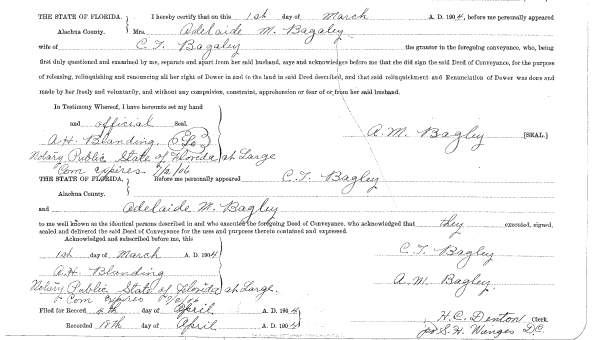 THE STATE OF FLORIDA, I hereby certify that on this 1st day of March A. D. 1904, before me personally appeared
Alachua County. Mrs. Adelaide M. Bagaley
wife of C. T. Bagaley the grantor in the foregoing conveyance, who, being
first duly questioned and examined by me, separate and apart from her said husband, says and acknowledges before me that she did sign the said Deed of Conveyance, for the purpose
of releasing, relinquishing and renouncing all her right of Dower in and to the land in said Deed described, and that said relinquishment and Renunciation of Dower was done and
made by her freely and voluntarily, and without any compulsion, constraint, apprehension or fear of or from her said husband.
In Testimony Whereof, I have hereunto set my hand
and official Seal.
A. H. Blanding,
A. M. Bagley [SEAL.]
Notary Public State of Florida at Large
Com expires 7/2/06
THE STATE OF FLORIDA, Before me personally appeared C. T. Bagley
Alachua County.
and Adelaide M. Bagley
to me well known as the identical persons described in and who executed the foregoing Deed of Conveyance, who acknowledged that they executed, signed,
sealed and delivered the said Deed of Conveyance for the uses and purposes therein contained and expressed.
Acknowledged and subscribed before me, this
1st day of March A. D. 1904
C. T. Bagley
A. H. Blanding
A. M. Bagley.
Notary Public State of Florida at Large.
Com expires 7/2/06
Filed for Record 4th day of April A. D. 1904
H. C. Denton Clerk.
Recorded 18th day of April A. D. 1904
per S. H. Wienges D.C.